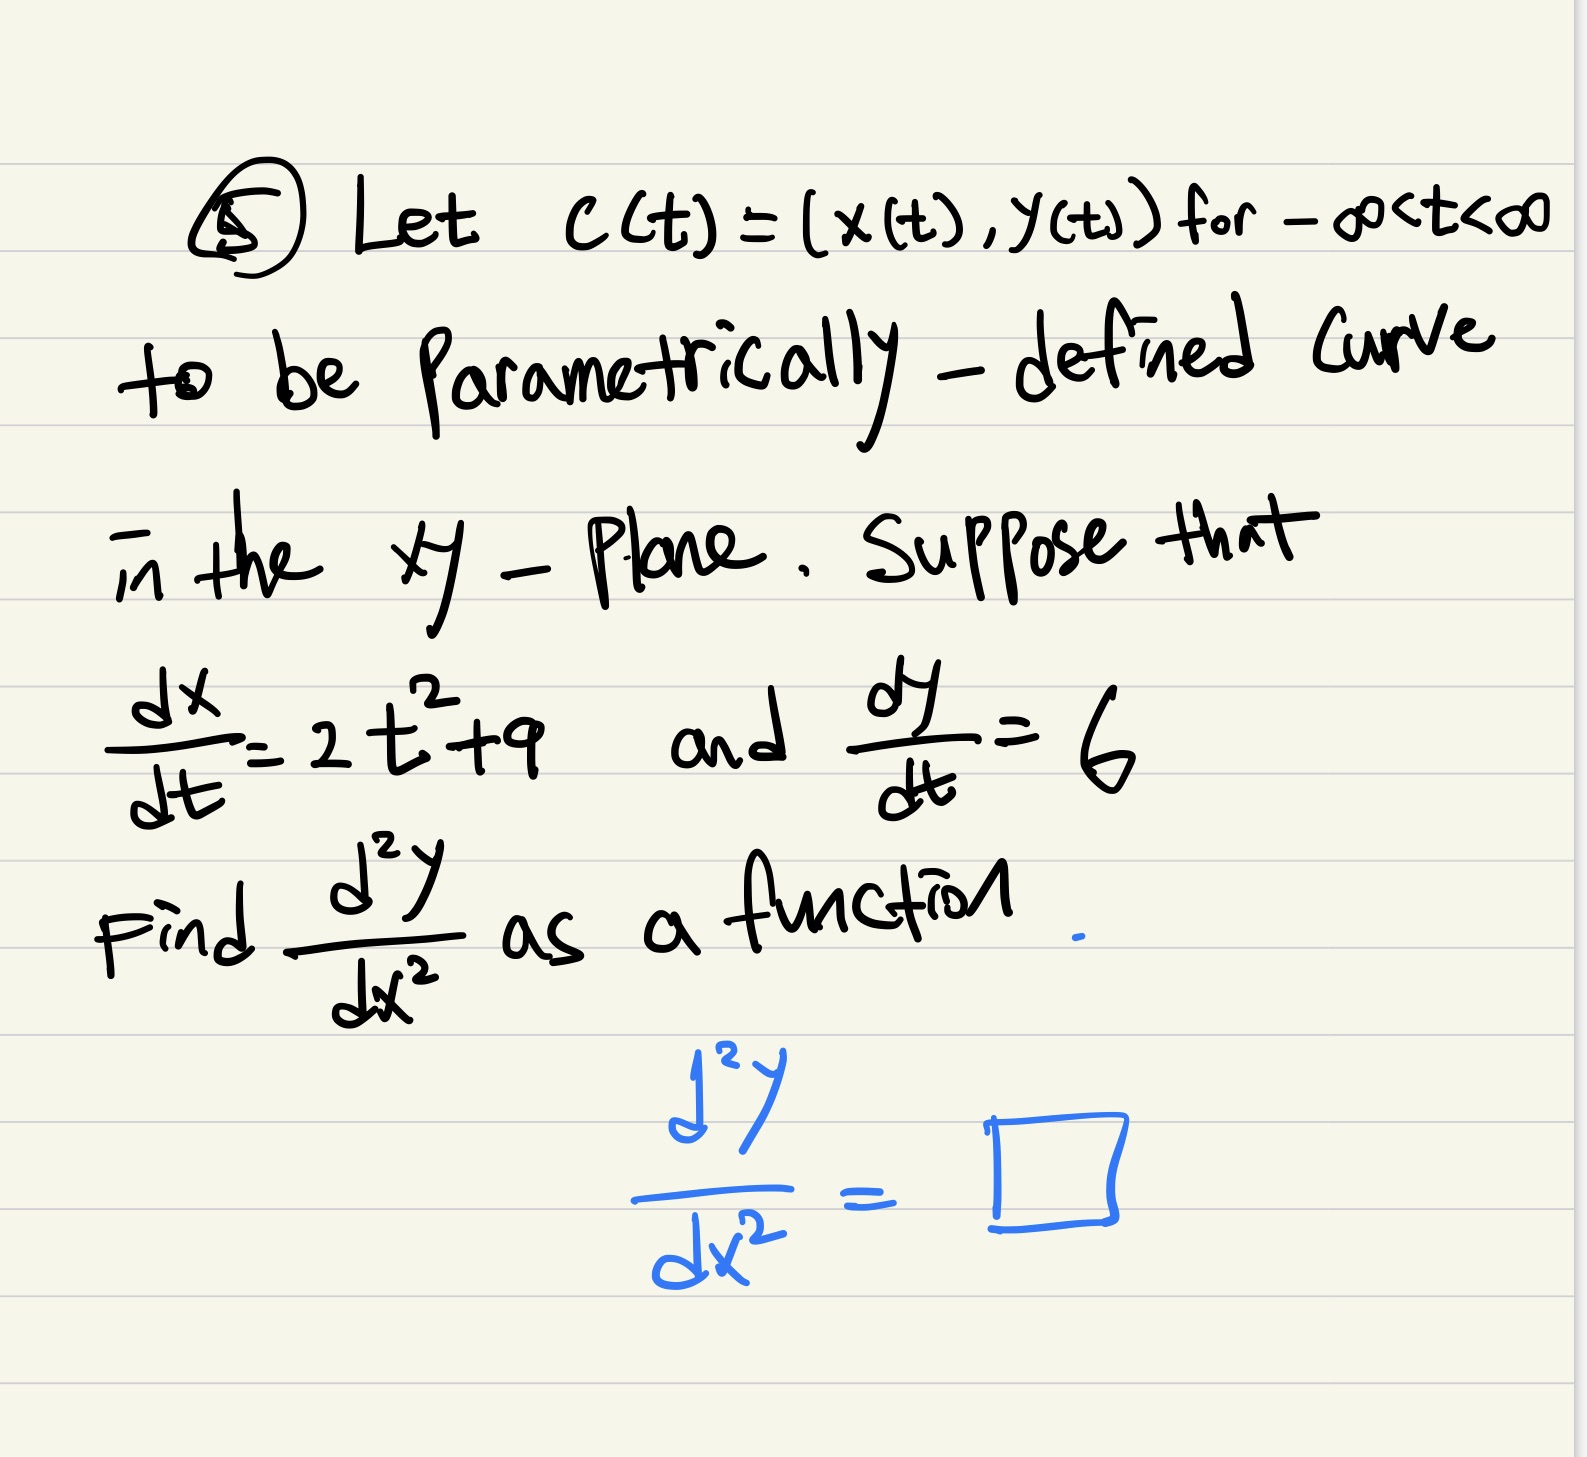 ⑤ Let C(t) = (x(t), y(t)) for -∞<t<∞
to be parametrically - defined curve
in the xy - plane. Suppose that
dx/dt = 2t²+9 and dy/dt = 6
Find d²y/dx² as a function.
d²y/dx² = □